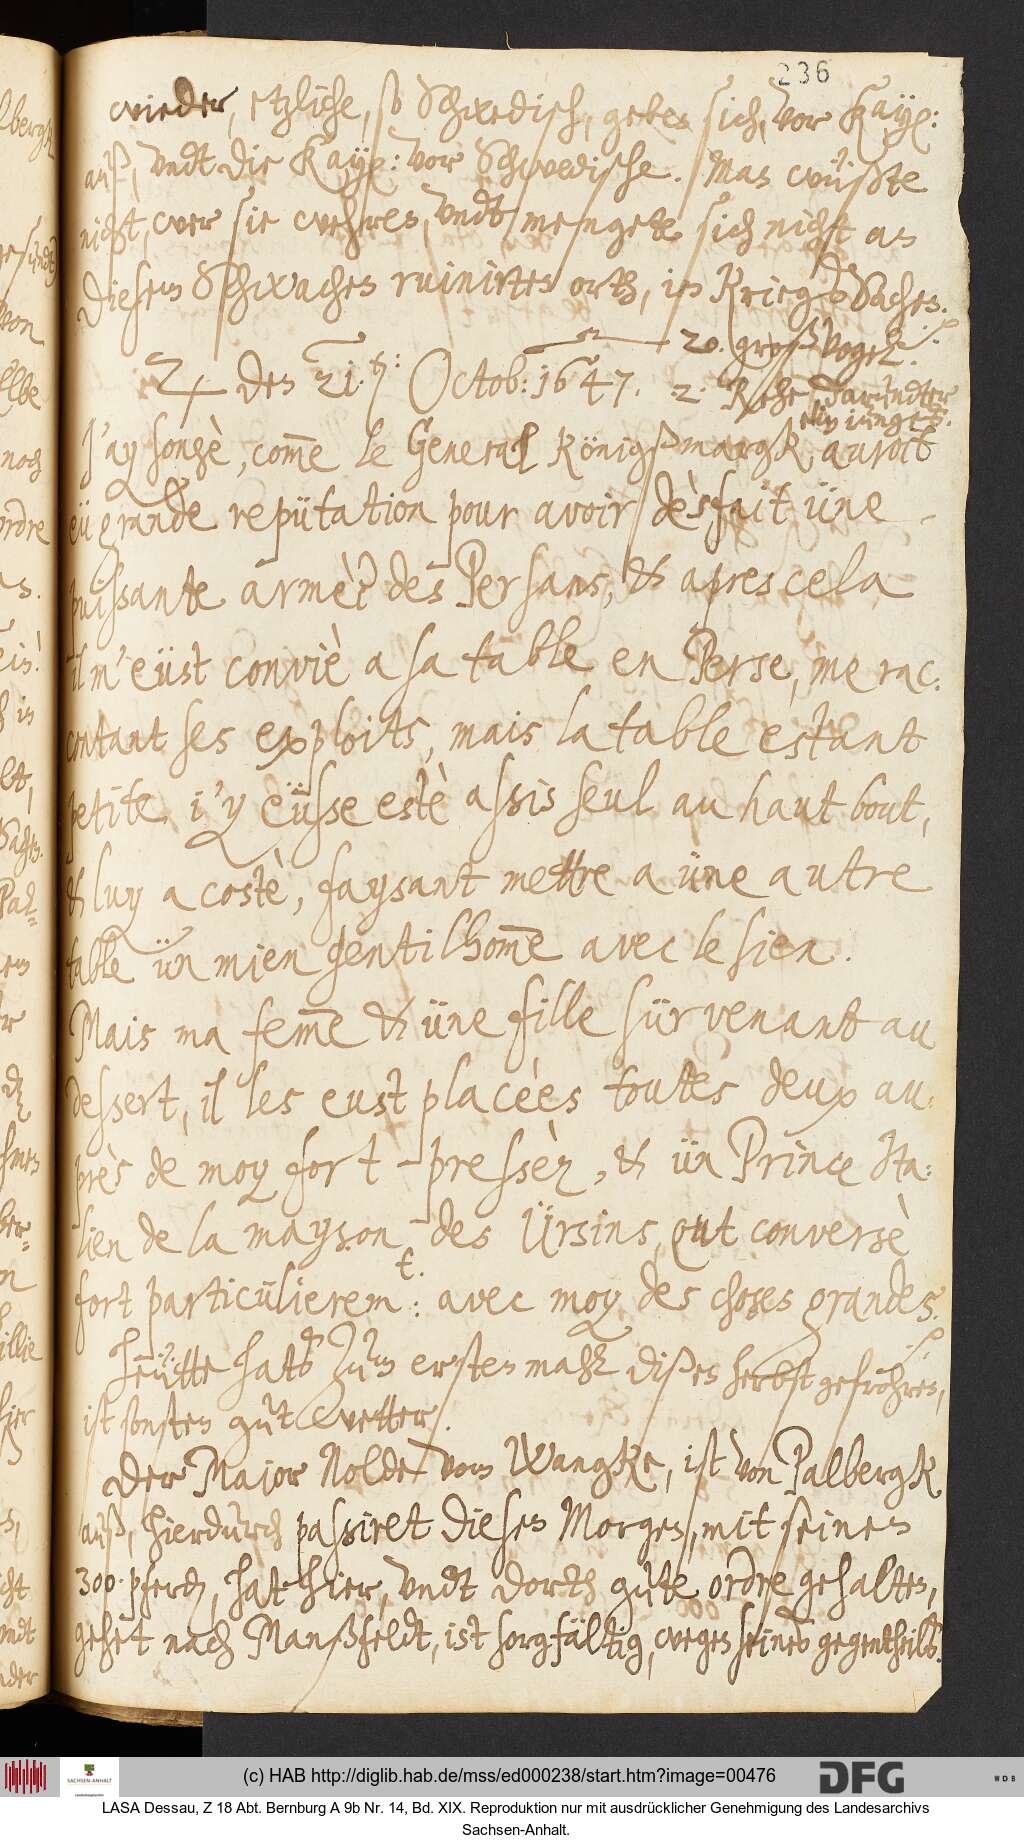 236
wieder, etzliche, so Schwedisch, geben sich, vor Kayß:
auß, undt die Kayß: vor Schwedische. Man wüßte
nicht, wer sie wehren, undt mengete sich nicht an
diesem Schwachen ruinirten orth, in Kriegß Sachen.
20. großVogel.
♃ den 21.ten: Octob: 1647. 2. Rehe, darundter
ein iunges.
J'ay songè, com̄e le General Königßmargk, auroit
eü grande repütation pour avoir dèsfait üne
puissante armèe des Persans, & apres cela
il m'eüst conviè a sa table en Perse, me rac.
contant ses exploits, mais la table estant
petite, i'y eüsse estè assis seul au haut bout,
& luy a costè, faysant mettre a üne autre
table ün mien gentilhom̄e avec le sien.
Mais ma fem̄e & üne fille sürvenant au
dessert, il les eust placèes toutes deux au:
près de moy fort pressèz, & ün Prince Ita:
lien de la mayson des Ürsins, eut conversè
fort particülierem:t. avec moy des choses grandes.
Heütte hatß zum ersten mahl dißes herbst gefrohren,
ist sonsten gut wetter.
Der Major Nolde vom Wangke, ist von Palbergk
auß, hierdurch passiret diesen Morgen, mit seinen
300 pferden, hat hier, undt dorth gute ordre gehalten,
gehet nach Manßfeldt, ist sorgfältig, wegen seines gegentheilß.
(c) HAB http://diglib.hab.de/mss/ed000238/start.htm?image=00476
SACHSEN-ANHALT
DFG
WDB
LASA Dessau, Z 18 Abt. Bernburg A 9b Nr. 14, Bd. XIX. Reproduktion nur mit ausdrücklicher Genehmigung des Landesarchivs
Sachsen-Anhalt.